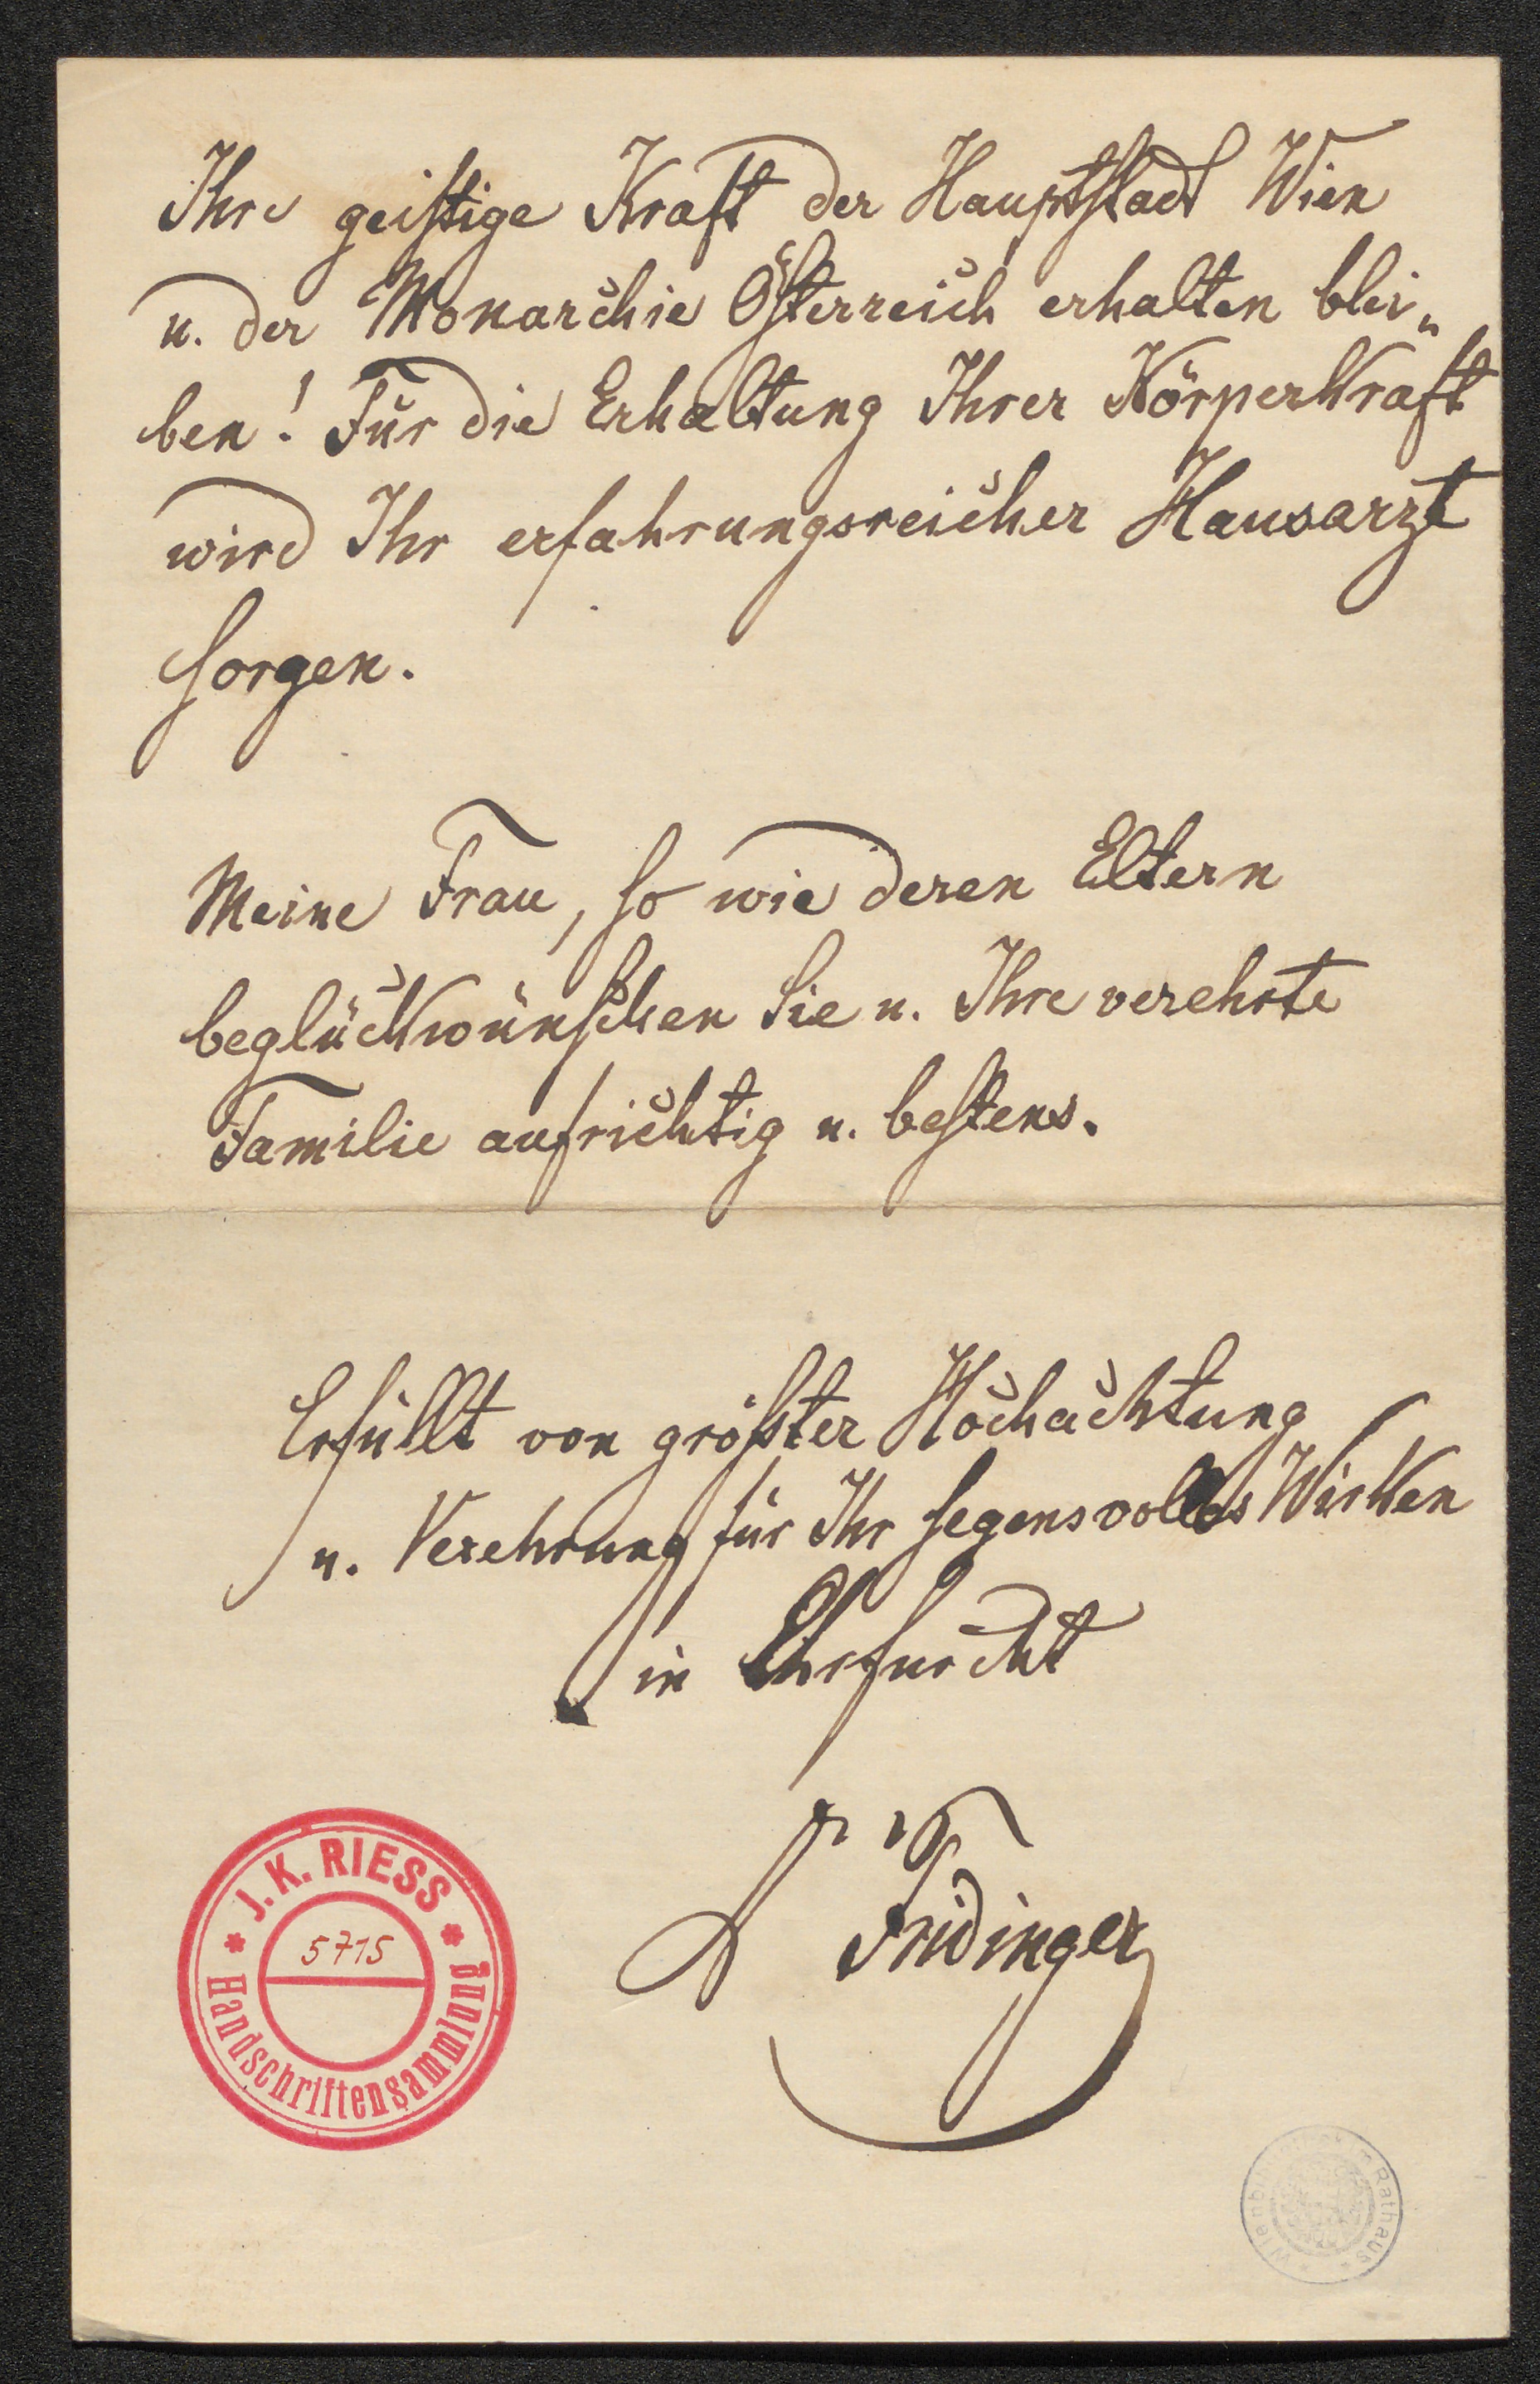 Ihre geistige Kraft der Hauptstadt Wien
u. der Monarchie Österreich erhalten blei„
ben! Für die Erhaltung Ihrer Körperkraft
wird Ihr erfahrungsreicher Hausarzt
sorgen.
Meine Frau, so wie deren Eltern
beglückwünschen Sie u. Ihre verehrte
Familie aufrichtig u. bestens.
Erfüllt von größter Hochachtung
u. Verehrung für Ihr segensvolles Wirken
in Ehrfurcht
Fridinger
J. K. RIESS
5715
Handschriftensammlung
Rathaus